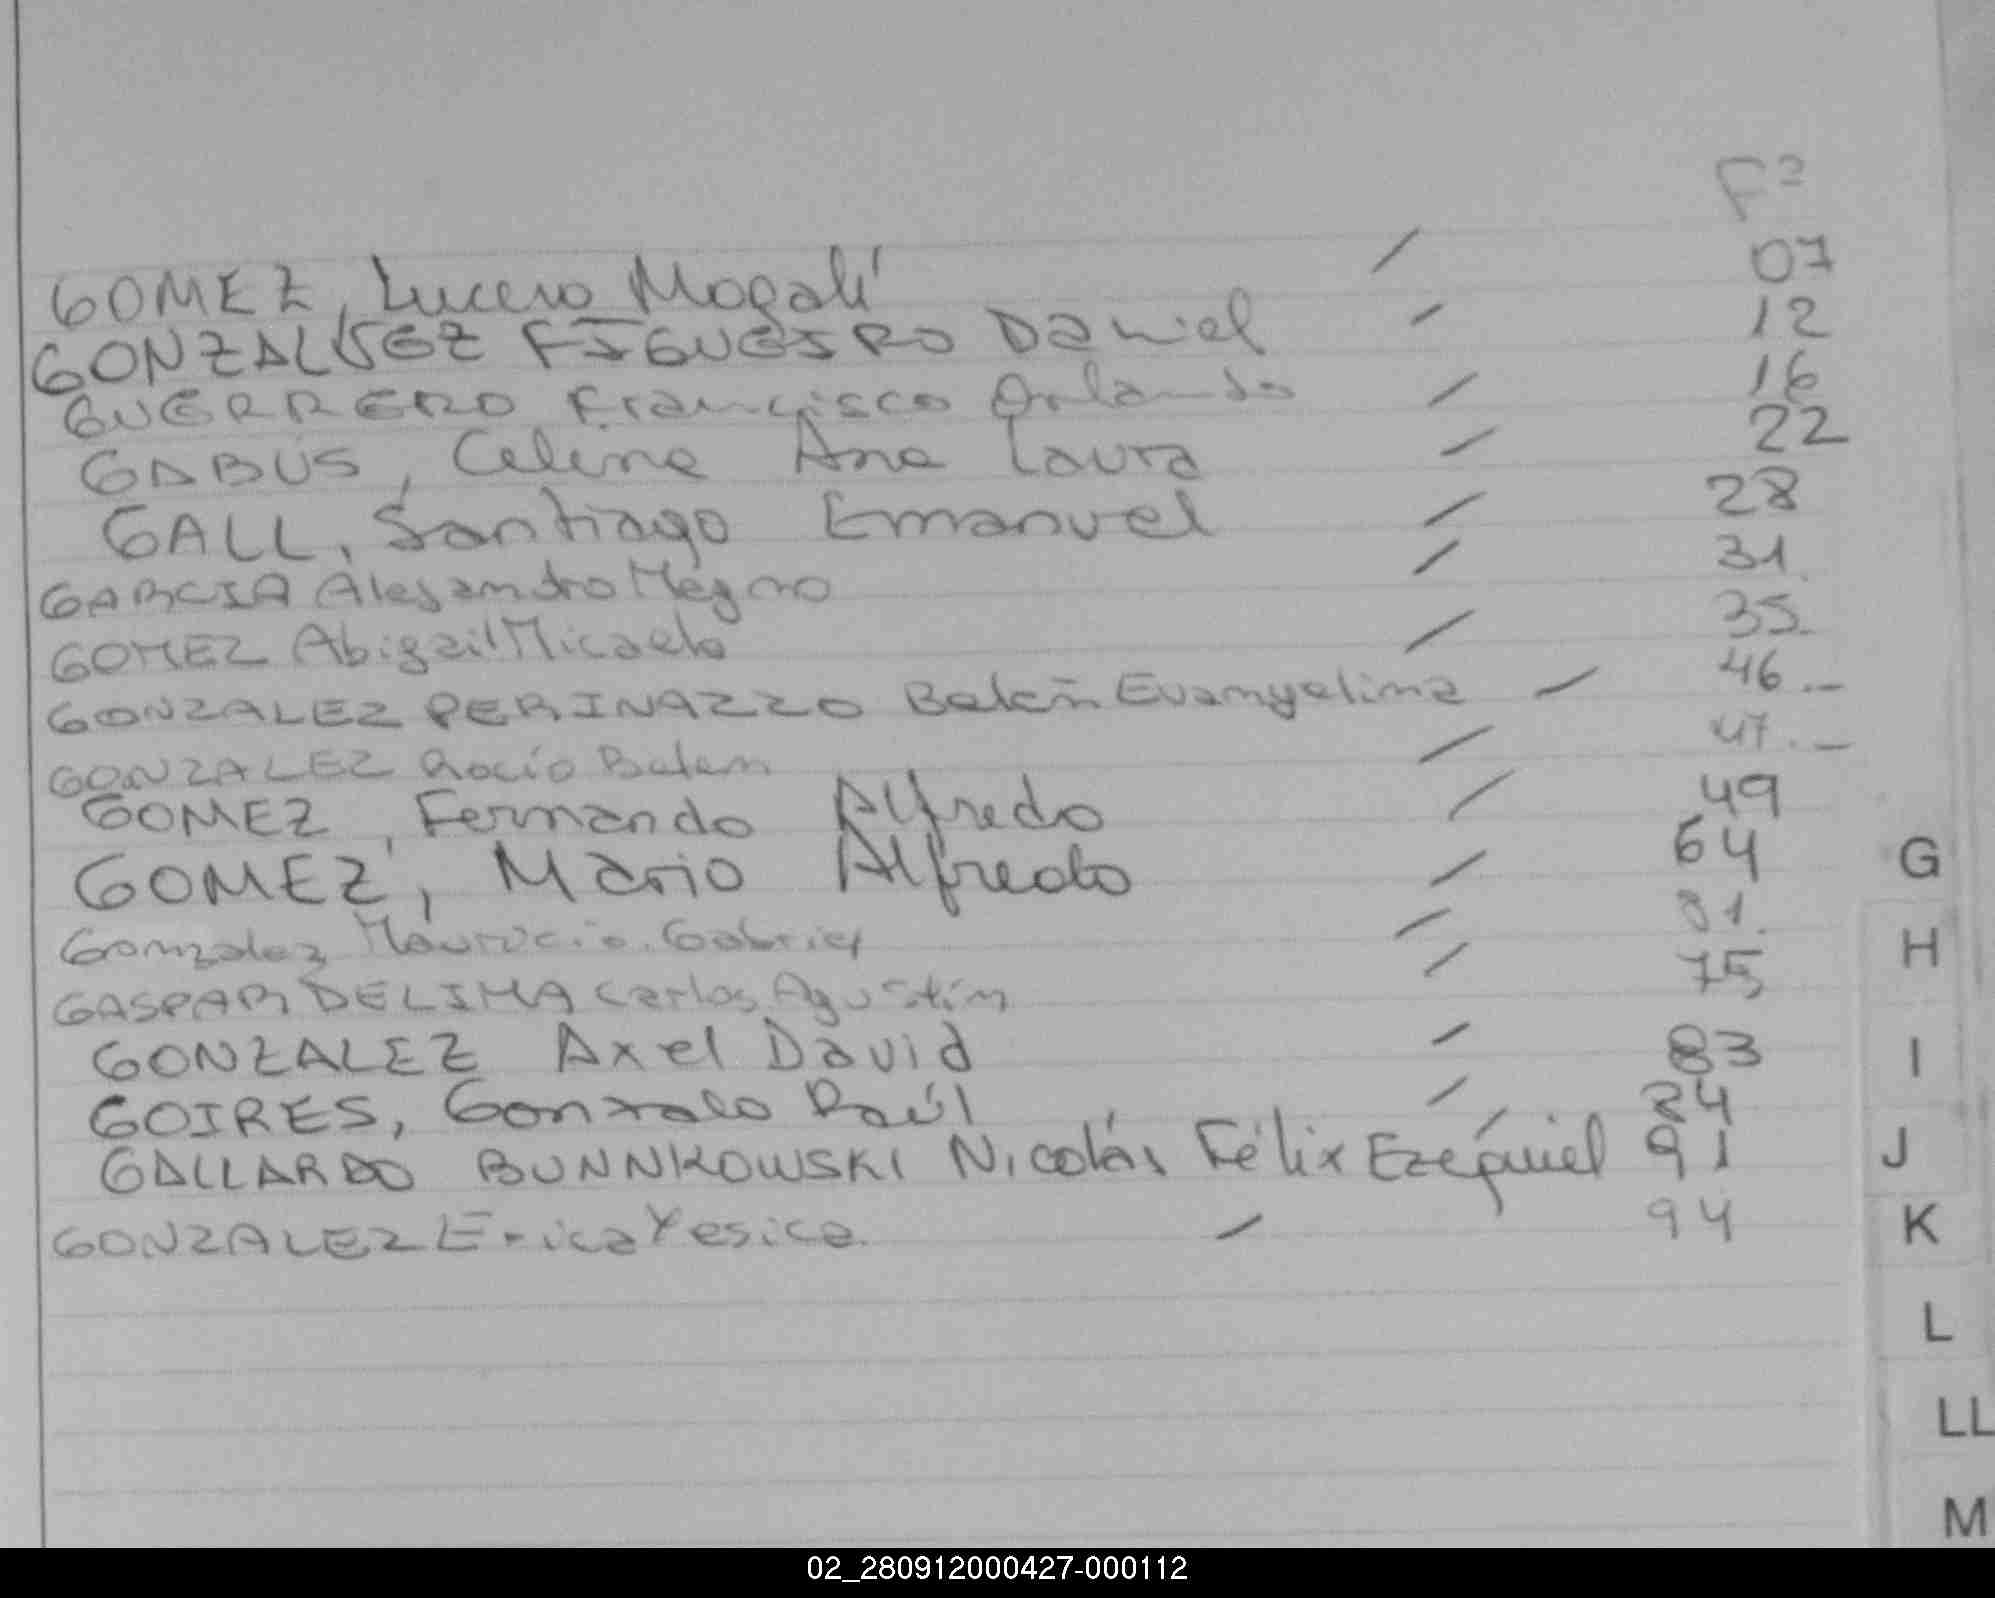 Fº
GOMEZ, Lucero Magalí / 07
GONZALVEZ FIGUEIRO Daniel / 12
GUERRERO Francisco Orlando / 16
GABUS, Celina Ana Laura / 22
GALL, Santiago Emanuel / 28
GARCIA Alejandro Magno / 31
GOMEZ Abigail Micaela / 35.
GONZALEZ PERINAZZO Belén Evangelina / 46.-
GONZALEZ Rocío Belen / 47.-
GOMEZ, Fernando Alfredo / 49
GOMEZ, Mario Alfredo / 64
Gonzalez Mauricio Gabriel /
GASPAR DELIMA Carlos Agustín / 75
GONZALEZ Axel David / 83
GOIRES, Gonzalo Raúl / 84
GALLARDO BUNNKOWSKI Nicolás Félix Ezequiel / 91
GONZALEZ Erica Yesica. / 94
G
H
I
J
K
L
LL
M
02_280912000427-000112